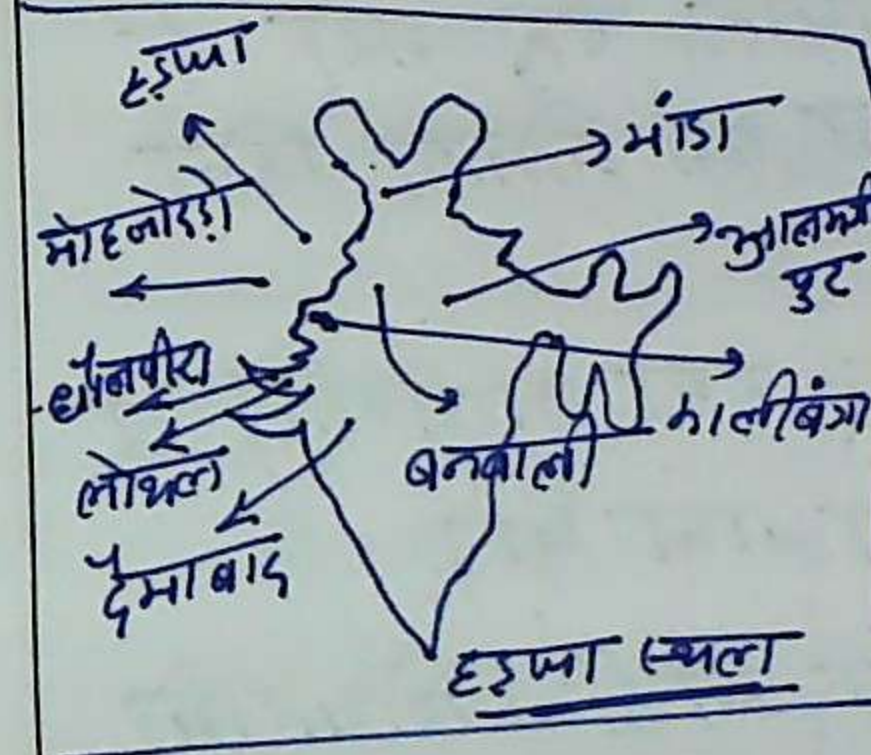 हड़प्पा
मांडा
मोहनजोदड़ो
आलमगीर
पुर
धौलावीरा
कालीबंगा
लोथल
बनवाली
दैमाबाद
हड़प्पा स्थल